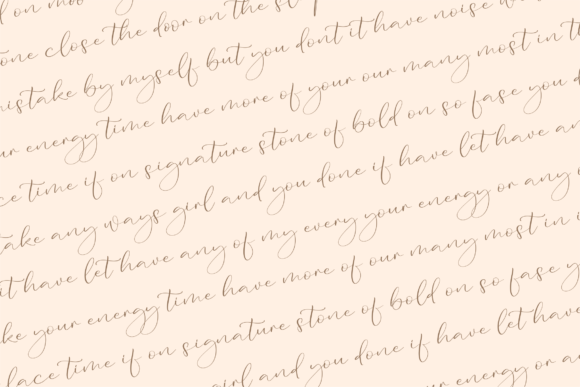 on moo
one close the door on the st
mistake by myself but you dont it have noise
ur energy time have more of your our many most in t
ce time if on signature stone of bold on so fase you d
take any ways girl and you done if have let have an
it have let have any of my every your energy or any
ke your energy time have more of our many most in
lace time if on signature stone of bold on so fase y
girl and you done if have let have
ur energy or a